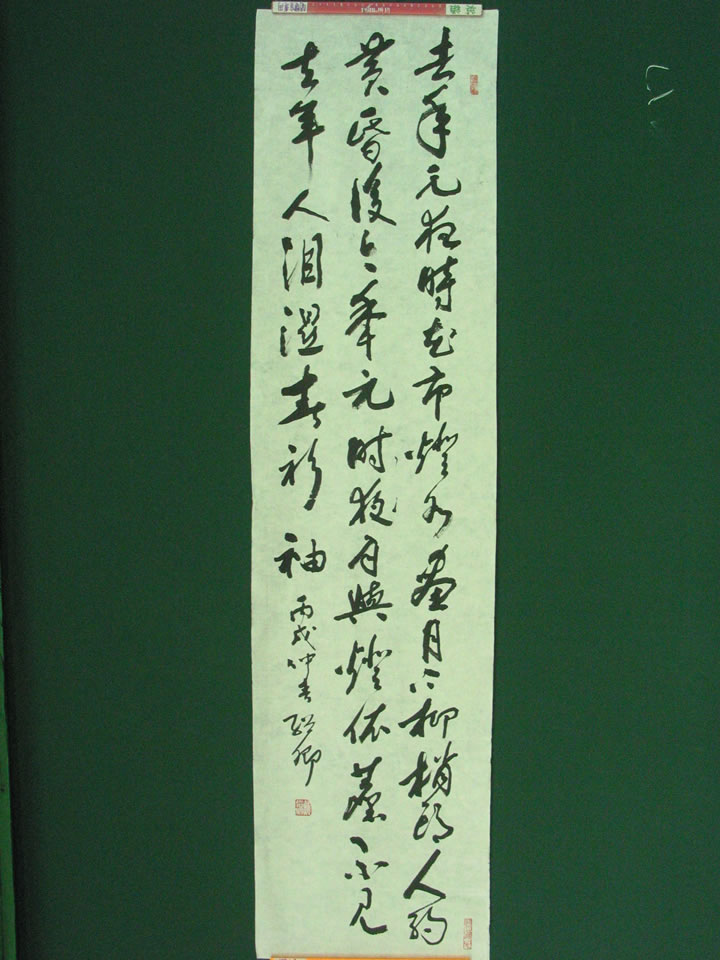 去年元夜時花市燈如畫月上柳梢頭人約
黄昏後今年元时夜月與燈依舊不見
去年人泪濕春衫袖
丙戌仲春 卿